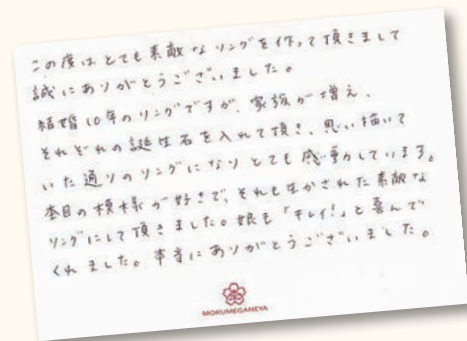 この度はとても素敵なリングを作って頂きまして
誠にありがとうございました。
結婚10年のリングですが、家族が増え、
それぞれの誕生石を入れて頂き、思い描いて
いた通りのリングになりとても感動しています。
杢目の模様が好きで、それも生かされた素敵な
リングにして頂きました。娘も「キレイ!」と喜んで
くれました。本当にありがとうございました。
MOKUMEGANEYA